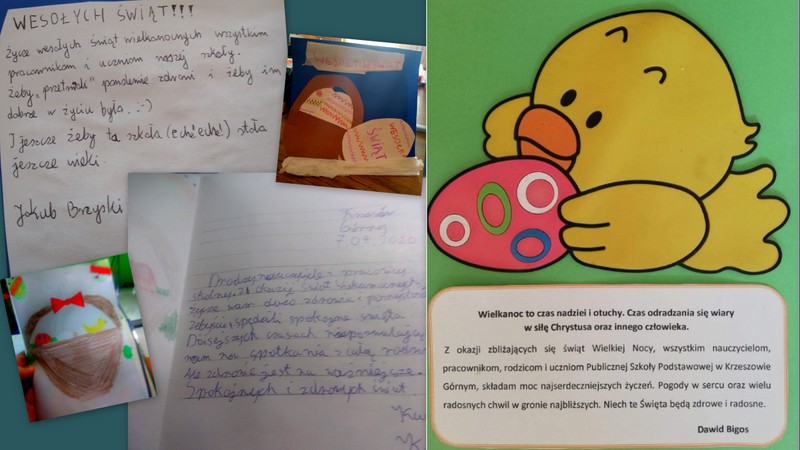 WESOŁYCH ŚWIĄT!!!
Życzę wesołych świąt wielkanocnych wszystkim
pracownikom i uczniom naszej szkoły.
żeby "przetrwali" pandemię zdrowi i żeby im
dobrze w życiu było. :-)
I jeszcze żeby ta szkoła (eche! eche!) stała
jeszcze wieki.
Jakub Brzyski
ŚWIĄT
Krzeszów
Górny
7.04.2020
Drodzy nauczyciele i pracownicy
szkoły. Z okazji świąt wielkanocnych
życzę wam dużo zdrowia i
żebyście spędzili spokojne święta
Dzisiejszych czasach
nam na spotkania z całą
Ale zdrowie jest najważniejsze.
Spokojnych i zdrowych świąt
Wielkanoc to czas nadziei i otuchy. Czas odradzania się wiary
w siłę Chrystusa oraz innego człowieka.
Z okazji zbliżających się świąt Wielkiej Nocy, wszystkim nauczycielom,
pracownikom, rodzicom i uczniom Publicznej Szkoły Podstawowej w Krzeszowie
Górnym, składam moc najserdeczniejszych życzeń. Pogody w sercu oraz wielu
radosnych chwil w gronie najbliższych. Niech te Święta będą zdrowe i radosne.
Dawid Bigos